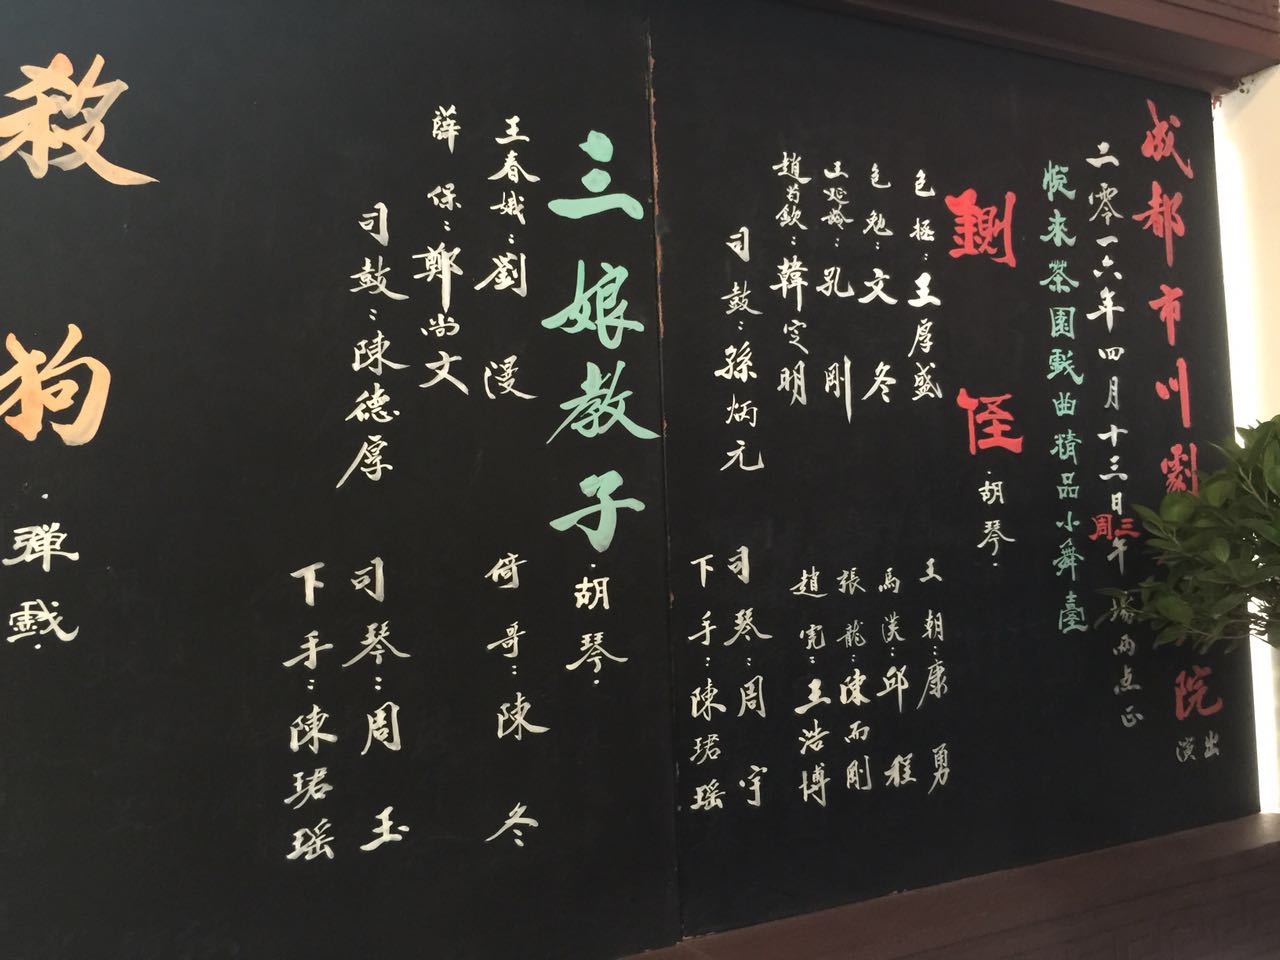 成都市川劇院演出
二零一六年四月十三日周三午場兩点正
悦来茶園戲曲精品小舞臺
鍘侄·胡琴·
包拯：王厚盛
王朝：康勇
包勉：文冬
馬漢：邱程
王延龄：孔剛
張龍：陳而剛
趙
欽：韓定明
趙虎：王浩博
司鼓：孫炳元
司琴：周宇
下手：陳珺瑶
三娘教子·胡琴·
王春娥：劉漫
倚哥：陳冬
薛保：鄭尚文
司鼓：陳德厚
司琴：周玉
下手：陳珺瑶
殺狗·弹戲·